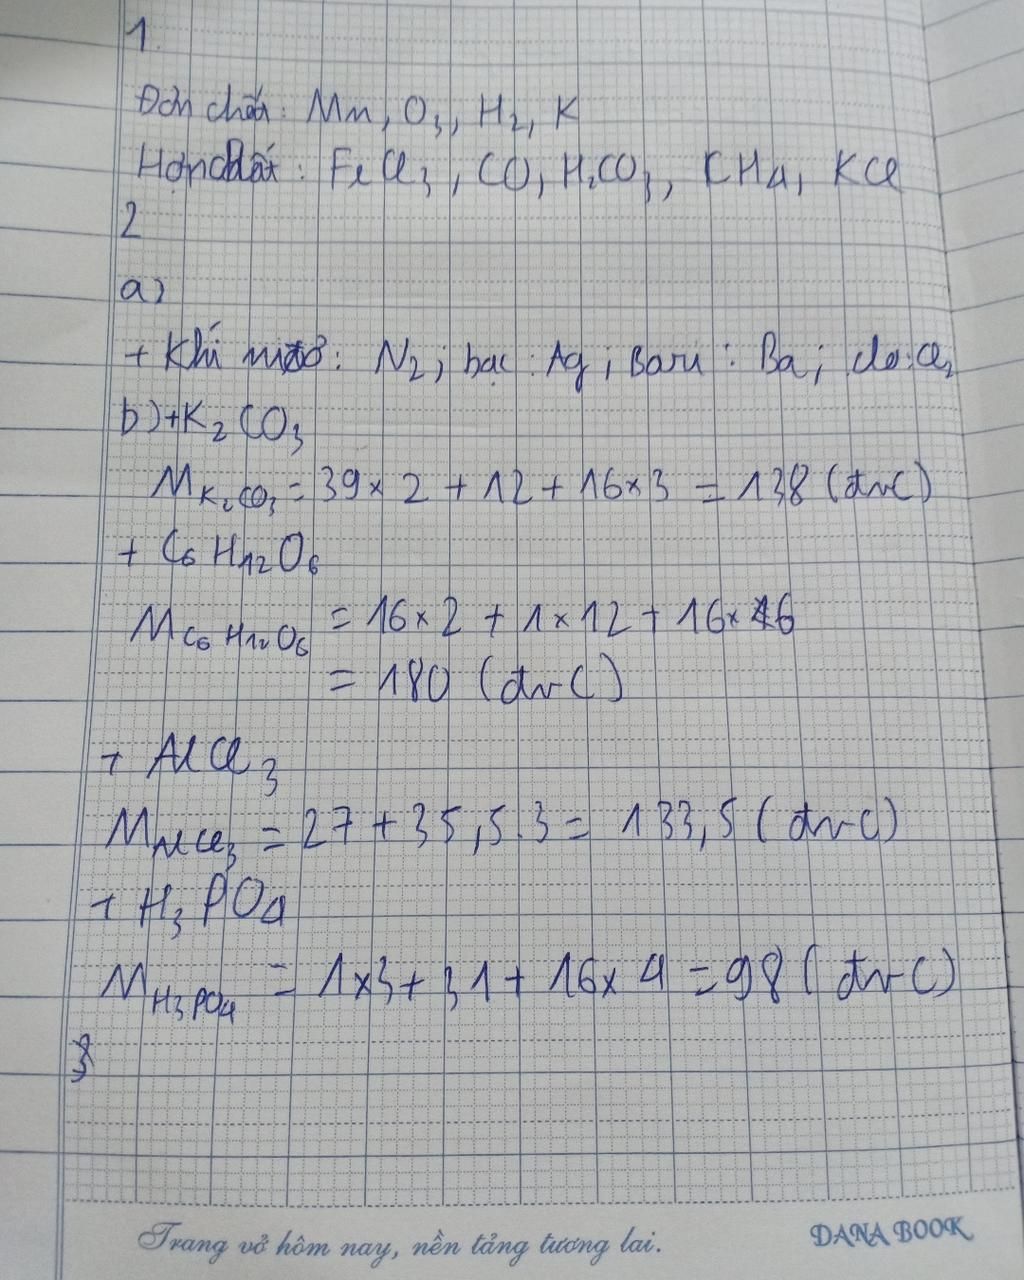 1.
Đơn chất: Mn, O3, H2, K
Hợp chất: FeCl3, CO, H2CO3, CH4, KCl
2
a)
+ Khí nitơ: N2; bạc: Ag; Bari: Ba; clo: Cl2
b) + K2CO3
MK2CO3 = 39 x 2 + 12 + 16 x 3 = 138 (đvC)
+ C6H12O6
MC6H12O6 = 16 x 2 + 1 x 12 + 16 x 6
= 180 (đvC)
+ AlCl3
MAlCl3 = 27 + 35,5.3 = 133,5 (đvC)
+ H3PO4
MH3PO4 = 1x3 + 31 + 16 x 4 = 98 (đvC)
3
Trang vở hôm nay, nền tảng tương lai.
DANA BOOK